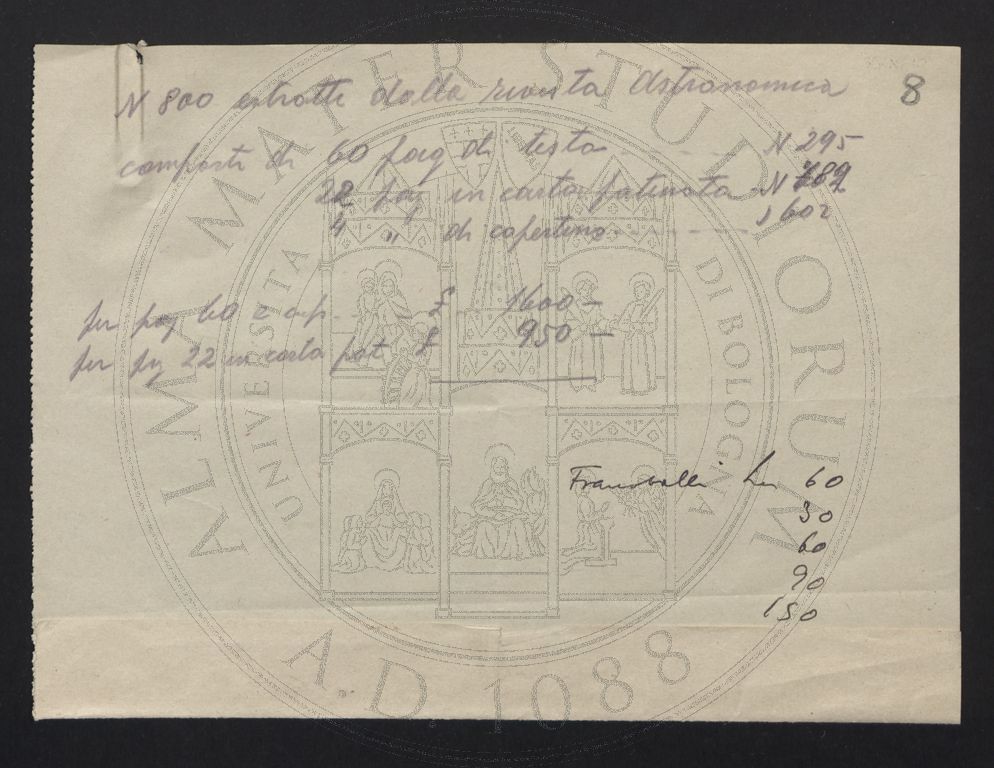 8
N 800 estratti dalla rivista Astronomica
composti di 60 pag di testo - - - - N 295
22 pag in carta patinata - N 789
4 " di copertina - - - - - - - " 602
per pag 60 e cop. - - - £ 1600 -
per pg 22 in carta pat. £ 950 -
Francobolli Lire 60
30
60
90
150
ALMA MATER STUDIORUM
UNIVERSITA DI BOLOGNA
A.D. 1088